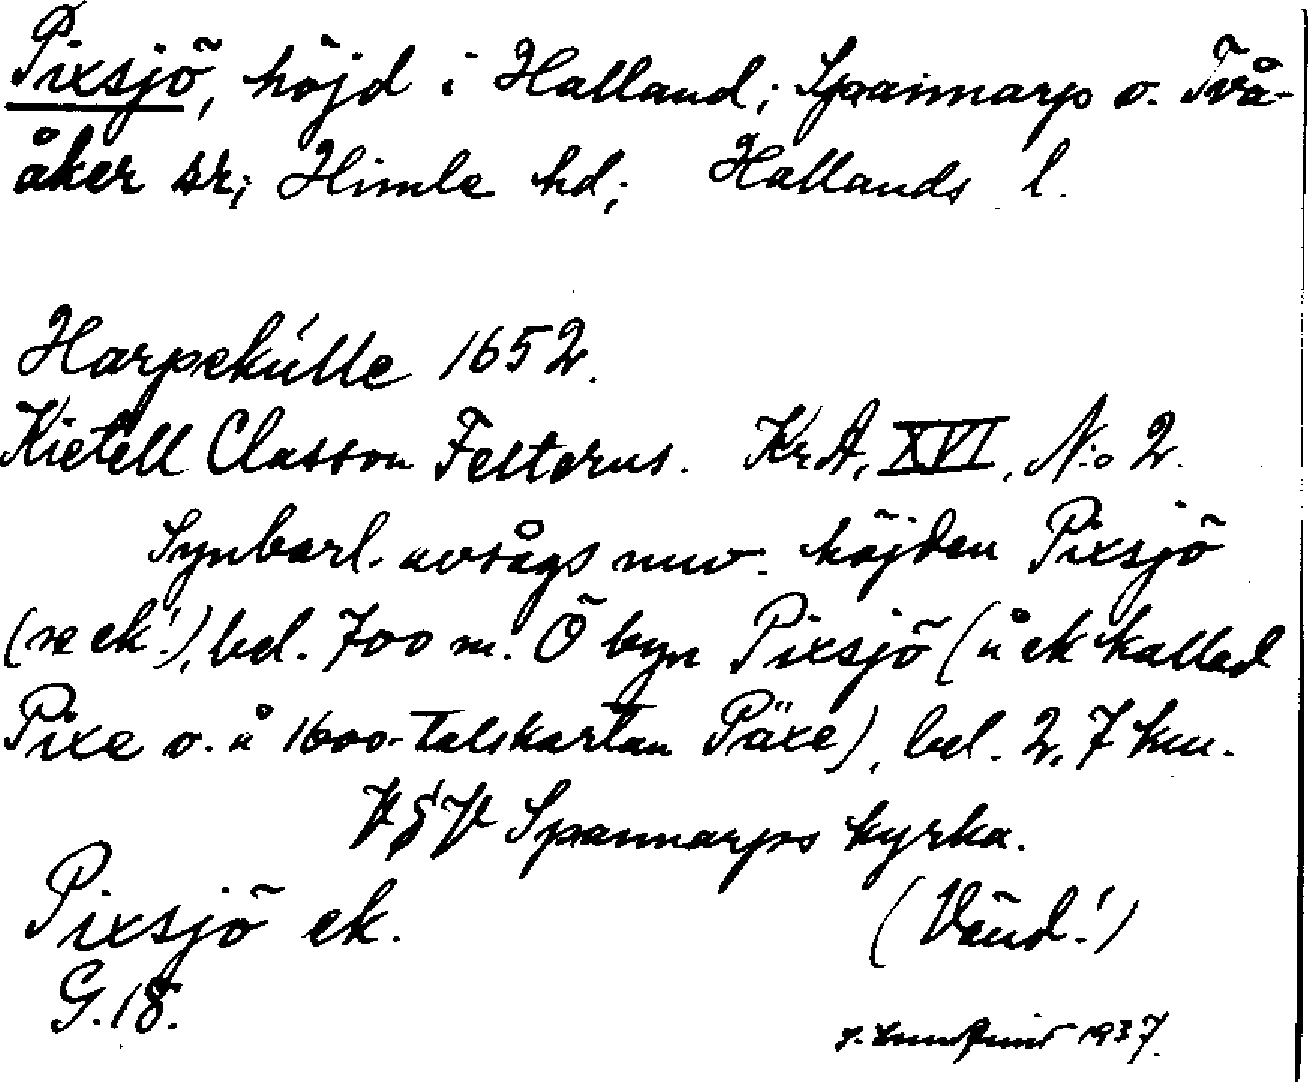 Pixsjö, höjd i Halland; Spannarp o. Två-
åker sr; Himle hd; Hallands l.
Harpekúlle 1652.
Kietell Classon Felterus. KrA, XVI, N:o 2.
Synbarl. avsågs nuv. höjden Pixsjö
(se ek!), bel. 700 m. Ö byn Pixsjö (å ek kallad
Pixe o. å 1600-talskartan Päxe), bel. 2,7 km.
V§V Spannarps kyrka.
Pixsjö ek. (Vänd!)
G. 18.
1937.